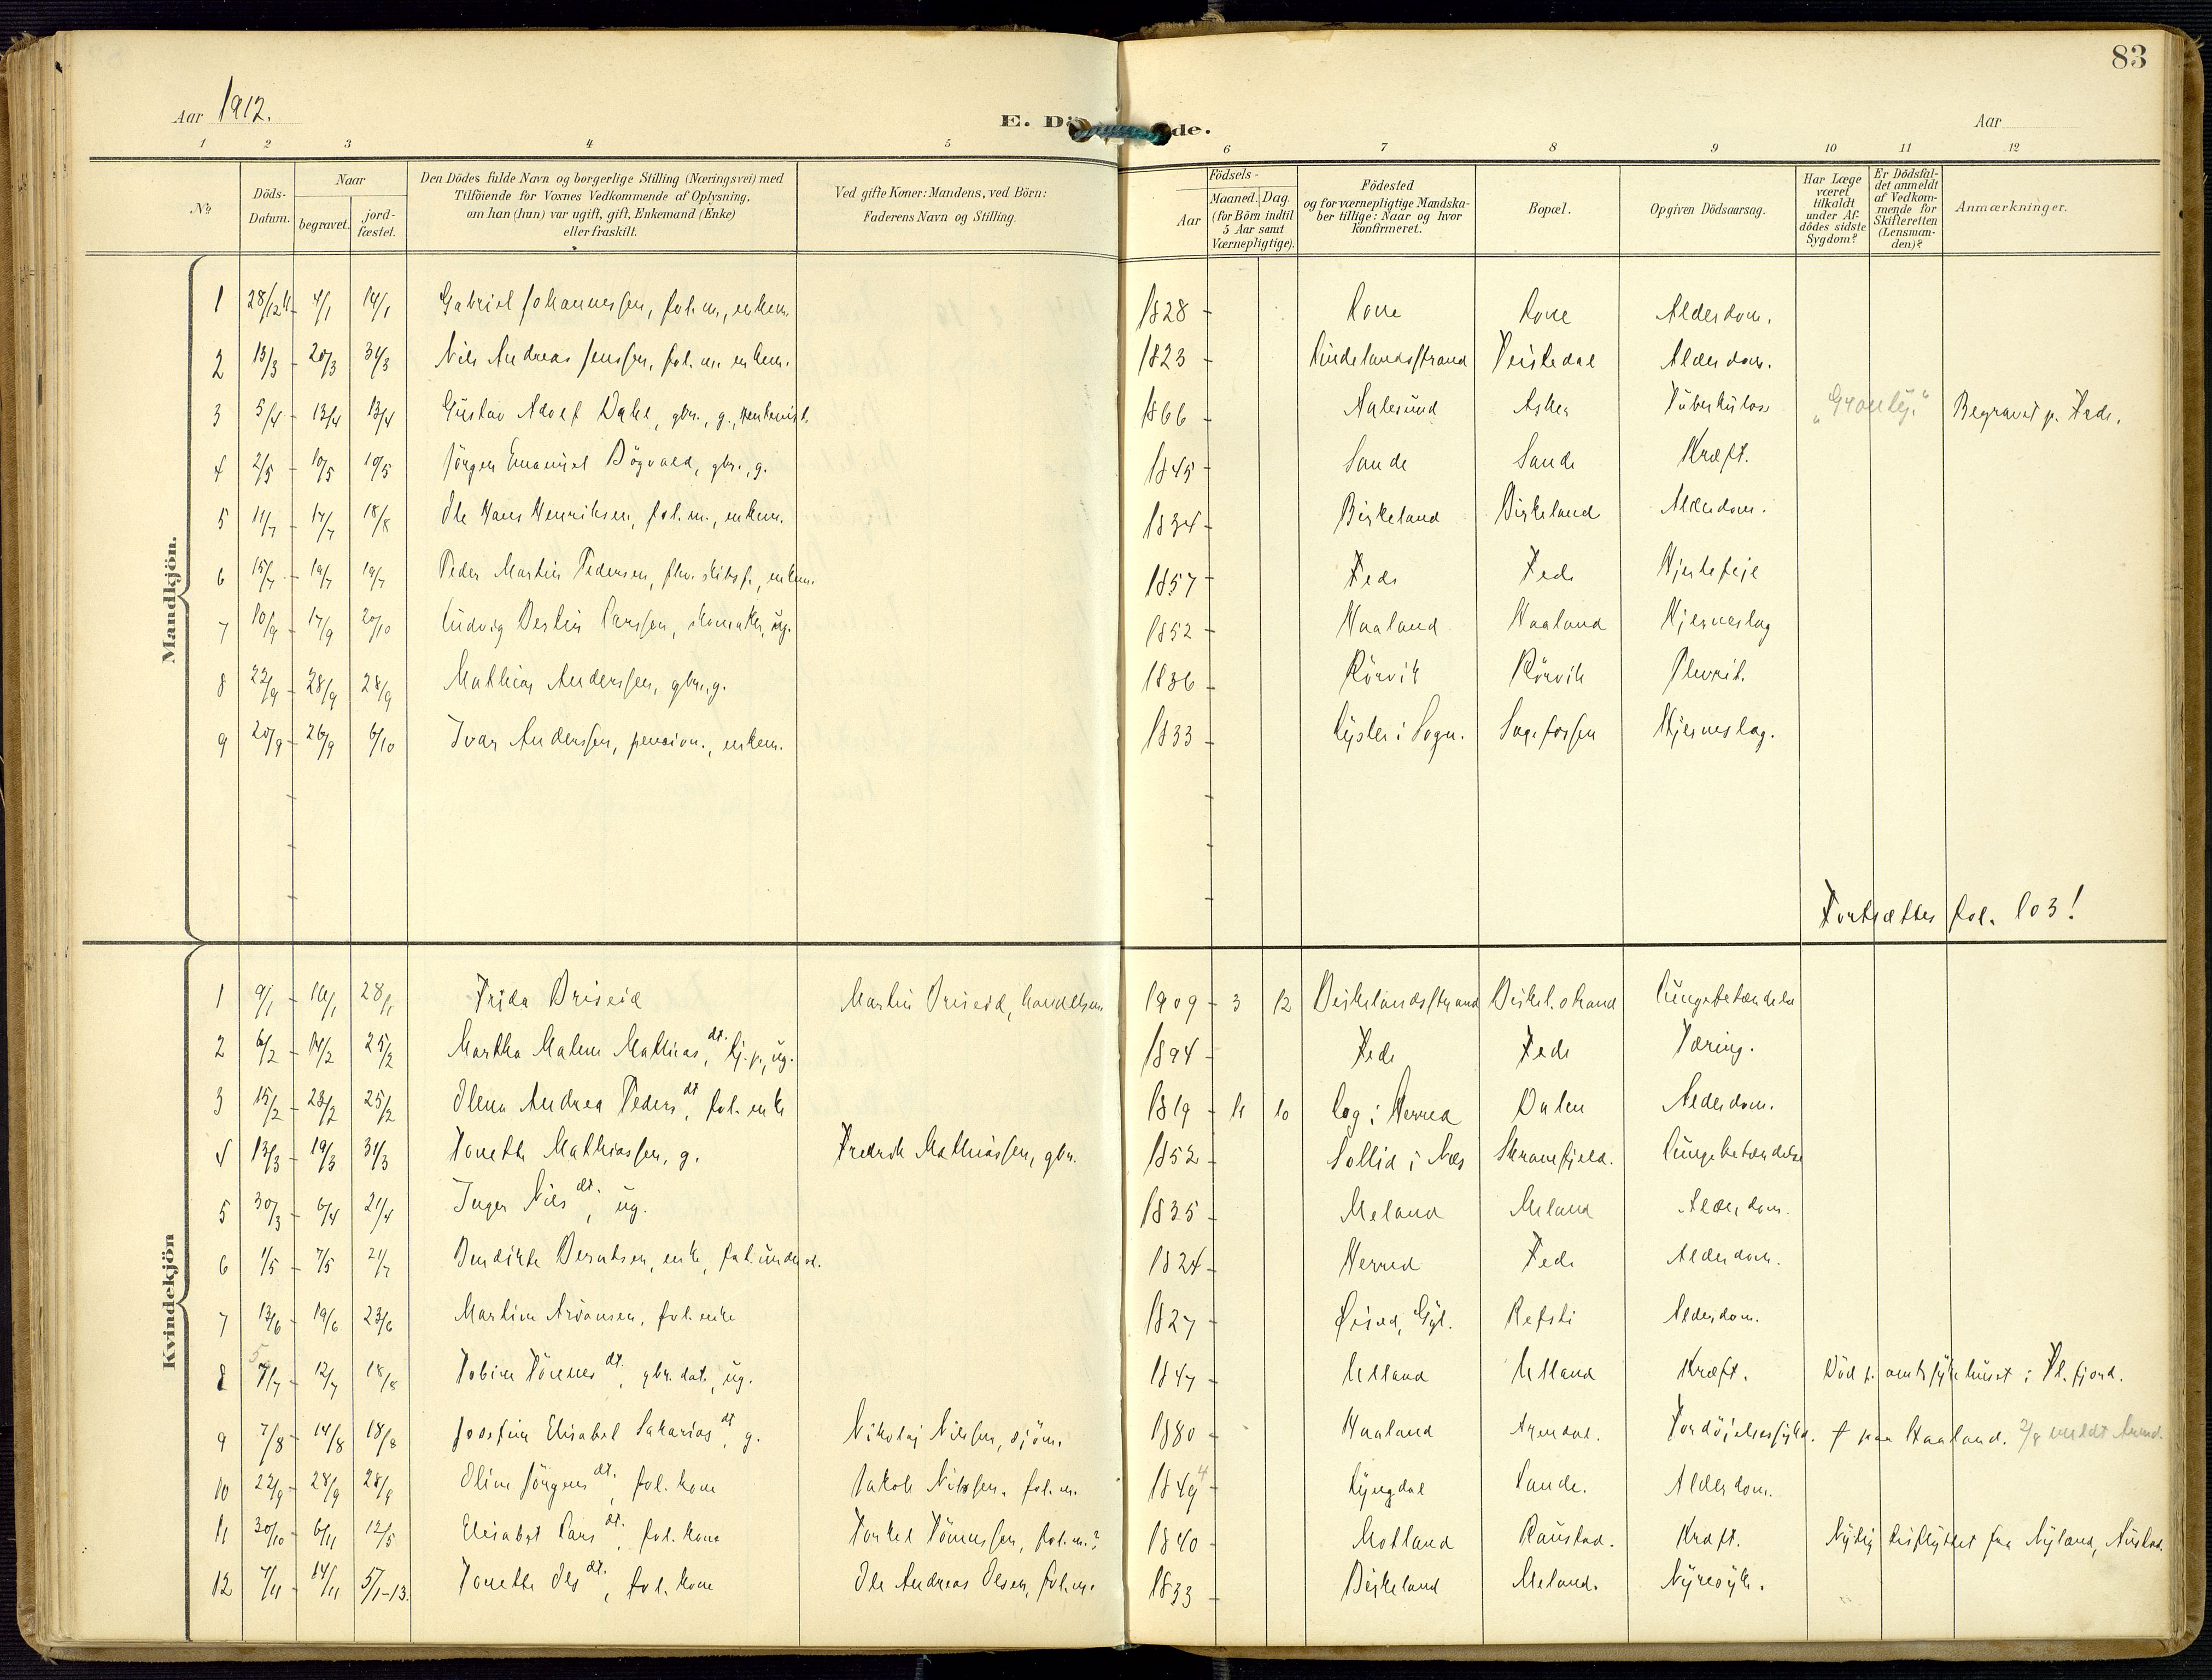 83
Aar 1912.
E. Dö de.
Aar
1 2 3 4 5 6 7 8 9 10 11 12
No
Döds-Datum.
Naar
begravet.
jordfæstet.
Den Dödes fulde Navn og borgerlige Stilling (Næringsvei) med
Tilföiende for Voxnes Vedkommende af Oplysning,
om han (hun) var ugift, gift, Enkemand (Enke)
eller fraskilt.
Ved gifte Koner: Mandens, ved Börn:
Faderens Navn og Stilling.
Födsels-
Aar
Maaned. Dag.
(for Börn indtil
5 Aar samt
Værnepligtige).
Födested
og for værnepligtige Mandska-
ber tillige: Naar og hvor
konfirmeret.
Bopæl.
Opgiven Dödsaarsag.
Har Læge
været
tilkaldt
under Af-
dödes sidste
Sygdom?
Er Dödsfal-
det anmeldt
af Vedkom-
mende for
Skifteretten
(Lensman-
den)?
Anmærkninger.
Mandkjön.
1 28/12 4/1 14/1 Gabriel Johannessen, fol.m., enkem. 1828 Alderdom.
2 13/3 20/3 31/3 Nils Andreas Jenssen, fol.m. enkem. 1823 Alderdom.
3 5/4 13/4 13/4 Gustav Adolf Dahl, gbr., g. 1866 Aalesund Asker Tuberkulose Begravet p. Fede.
4 2/5 10/5 10/5 Jörgen Emanuel Bögvald, gbr., g. 1845 Sande Sande Kræft.
5 11/7 17/7 18/8 Ole Hans Henriksen, fol.m., enkem. 1834 Birkeland Birkeland Alderdom.
6 15/7 19/7 19/7 Peder Martin Pedersen, fhv. skibsf., enkem. 1857 Fede Fede Hjertefeil
7 10/9 17/9 20/10 Ludvig Bertin Larssen, skomaker, ug. 1852 Haaland Haaland Hjerneslag
8 22/9 28/9 28/9 Mathias Anderssen, gbr., g. 1836 Rörvik Rörvik Plevrit.
9 20/9 26/9 6/10 Ivar Anderssen, pension., enkem. 1833 Lyster i Sogn. Sagefossen Hjerneslag.
Fortsættes fol. 103!
Kvindekjön
1 9/1 16/1 28/1 Frida Briseid Martin Briseid, handelsm. 1909 3 12 Birkelandsstrand Birkel.strand Lungebetændelse
2 6/2 14/2 25/2 Martha Malene Mathias dt., tj.p., ug. 1894 Fede Fede Tæring.
3 15/2 23/2 25/2 Olena Andrea Peders dt., fol. enke 1819 11 10 Log i Herred Dalen Alderdom.
4 13/3 19/3 31/3 Tonette Mathiassen, g. Fredrik Mathiassen, gbr. 1852 Sollid i Næs Skranefjeld. Lungebetændelse
5 30/3 6/4 21/4 Inger Nils dt., ug. 1835 Meland Meland Alderdom.
6 1/5 7/5 21/7 Bendikte Berntsen, enke, fat.underst. 1824 Herred Fede Alderdom.
7 13/6 19/6 23/6 Martine Aroansen, fol. enke 1827 Refsti Alderdom.
8 7/7 12/7 18/8 Tobine Tönnes dt., gbr.dat., ug. 1847 Utland Utland Kræft. Död p. amtssykehuset i Fl.fjord.
9 7/8 14/8 18/8 Josefine Elisabet Sakarias dt., g. Nikolaj Nilssen, sjöm. 1880 Haaland Arendal. Fordöielsessygd. † paa Haaland.
10 22/9 28/9 28/9 Oline Jörgens dt., fol. kone Jakob Nilssen, fol.m. 1849 4 Lyngdal Sande. Alderdom.
11 30/10 6/11 12/5 Elisabet Lars dt., fol. kone Torkel Tönnessen, fol.m.? 1840 Motland Raustad. Kræft. Nylig tilflyttet fra Nyland,
12 7/11 14/11 5/1-13. Tonette Ols dt., fol. kone Ole Andreas Olsen, fol.m. 1833 Birkeland Meland. Nyresyk.